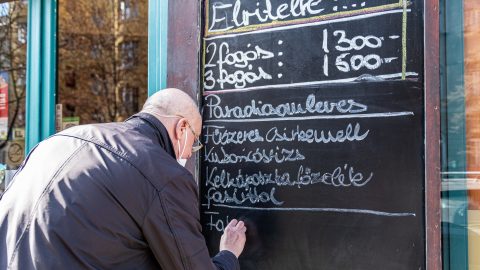 Elvitelre:...
2 fogás : 1300-
3 fogás : 1500-
Paradicsomleves
Fűszeres csirkemell
Kukoricás rizs
Kelkáposzta főzelék
fasírttal
Fa